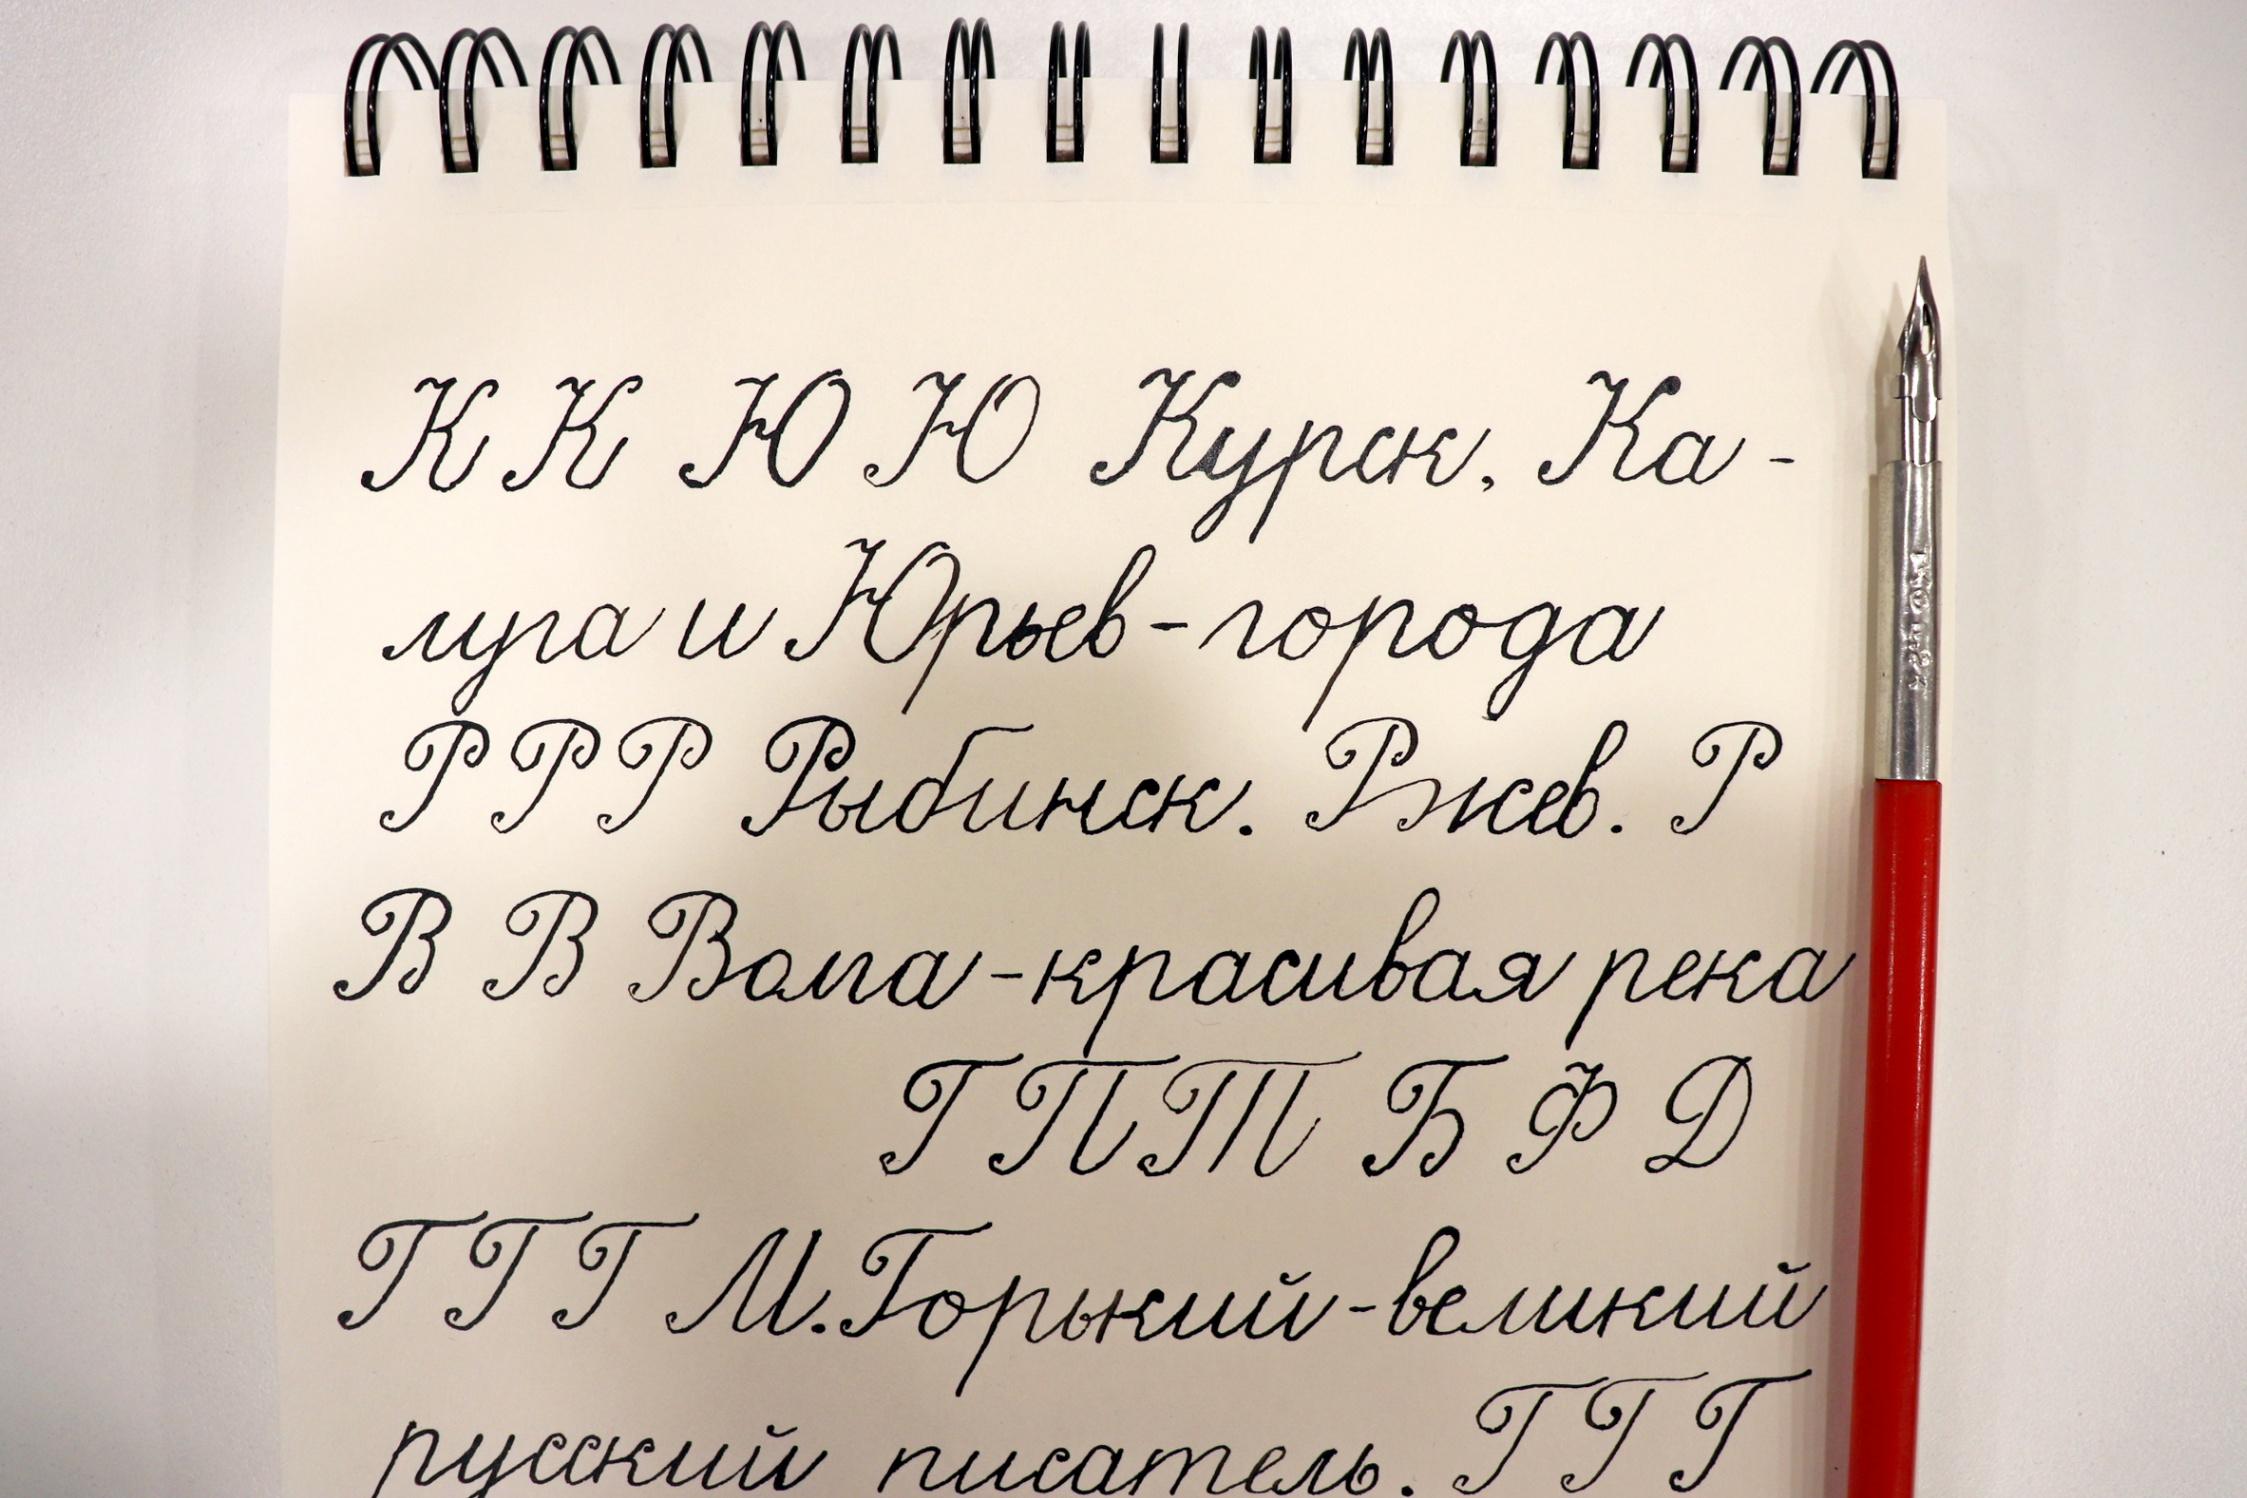 К К Ю Ю Курск, Ка-
луга и Юрьев - города
Р Р Р Рыбинск. Ржев. Р
В В Волга - красивая река
Г П Т Б Ф D
Г Г Г М. Горький - великий
русский писатель. Г Г Г